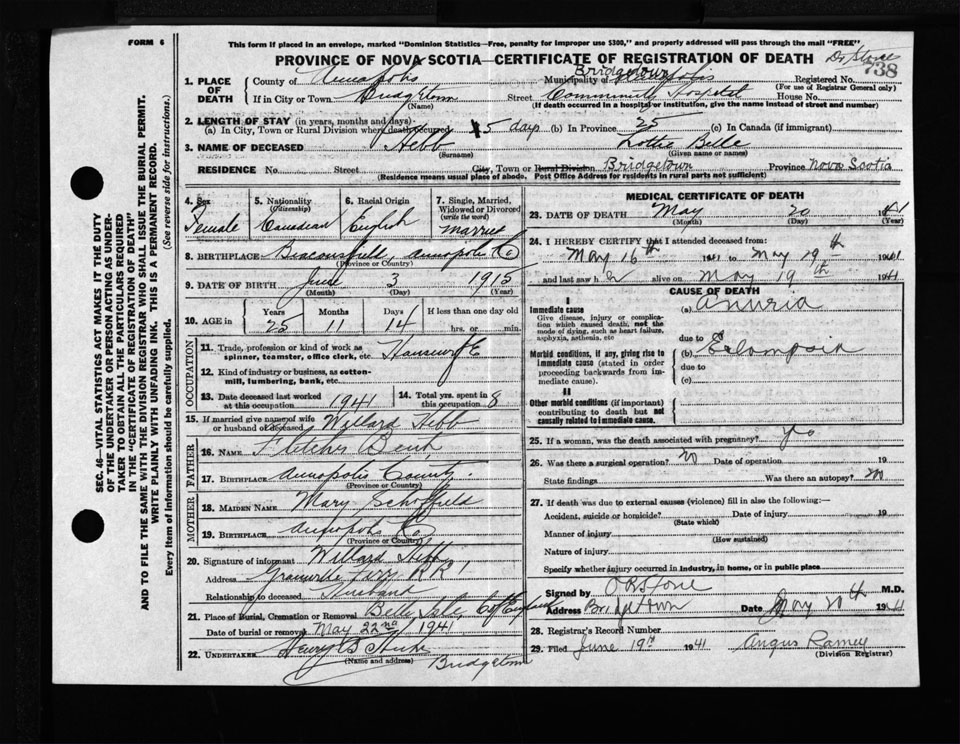 FORM 6
This form if placed in an envelope, marked "Dominion Statistics—Free, penalty for improper use $300," and properly addressed will pass through the mail "FREE"
PROVINCE OF NOVA SCOTIA—CERTIFICATE OF REGISTRATION OF DEATH
Dr Stone
738
1. PLACE OF DEATH
County of Annapolis
Bridgetown
Municipality of Annapolis
Registered No.
(For use of Registrar General only)
If in City or Town Bridgetown
(Name)
Street Community Hospital House No.
(If death occurred in a hospital or institution, give the name instead of street and number)
2. LENGTH OF STAY (in years, months and days)
(a) In City, Town or Rural Division where death occurred 5 days (b) In Province 25 (c) In Canada (if immigrant)
3. NAME OF DECEASED Hebb Lottie Belle
(Surname) (Given name or names)
RESIDENCE No. Street City, Town or Rural Division Bridgetown Province Nova Scotia
(Residence means usual place of abode. Post Office Address for residents in rural parts not sufficient)
4. Sex
Female
5. Nationality
(Citizenship)
Canadian
6. Racial Origin
English
7. Single, Married, Widowed or Divorced
(write the word)
Married
8. BIRTHPLACE Beaconsfield, Annapolis Co
(Province or County)
9. DATE OF BIRTH June 3 1915
(Month) (Day) (Year)
10. AGE in
Years Months Days If less than one day old
25 11 14 hrs. or min.
OCCUPATION
11. Trade, profession or kind of work as spinner, teamster, office clerk, etc. Housewife
12. Kind of industry or business, as cotton-mill, lumbering, bank, etc.
13. Date deceased last worked at this occupation 1941
14. Total yrs. spent in this occupation 8
15. If married give name of wife or husband of deceased Willard Hebb
FATHER
16. NAME Fletcher
17. BIRTHPLACE Annapolis County
(Province or County)
MOTHER
18. MAIDEN NAME Mary Schoffield
19. BIRTHPLACE Annapolis Co
(Province or County)
20. Signature of informant Willard Hebb
Address Granville Ferry RR 1
Relationship to deceased Husband
21. Place of Burial, Cremation or Removal Belle Isle, C of England
Date of burial or removal May 22nd 1941
22. UNDERTAKER Henry B Hicks
(Name and address) Bridgetown
MEDICAL CERTIFICATE OF DEATH
23. DATE OF DEATH May 20 1941
(Month) (Day) (Year)
24. I HEREBY CERTIFY that I attended deceased from:
May 16th 1941 to May 19th 1941
and last saw her alive on May 19th 1941
CAUSE OF DEATH
I
Immediate cause (a) Anuria
Give disease, injury or complication which caused death, not the mode of dying, such as heart failure, asphyxia, asthenia, etc
due to
Morbid conditions, if any, giving rise to immediate cause (stated in order proceeding backwards from immediate cause).
(b) Eclampsia
due to
(c)
II
Other morbid conditions (if important) contributing to death but not causally related to immediate cause.
25. If a woman, was the death associated with pregnancy? yes
26. Was there a surgical operation? no Date of operation 19
State findings Was there an autopsy? no
27. If death was due to external causes (violence) fill in also the following:—
Accident, suicide or homicide? Date of injury 19
(State which)
Manner of injury
(How sustained)
Nature of injury
Specify whether injury occurred in industry, in home, or in public place
Signed by O R Stone M.D.
Address Bridgetown Date May 20th 1941
28. Registrar's Record Number
29. Filed June 19th 1941 Angus Ramey
(Division Registrar)
SEC. 46—VITAL STATISTICS ACT MAKES IT THE DUTY
OF THE UNDERTAKER OR PERSON ACTING AS UNDER-
TAKER TO OBTAIN ALL THE PARTICULARS REQUIRED
IN THE "CERTIFICATE OF REGISTRATION OF DEATH"
AND TO FILE THE SAME WITH THE DIVISION REGISTRAR WHO SHALL ISSUE THE BURIAL PERMIT.
WRITE PLAINLY WITH UNFADING INK. THIS IS A PERMANENT RECORD.
Every item of Information should be carefully supplied. (See reverse side for instructions.)